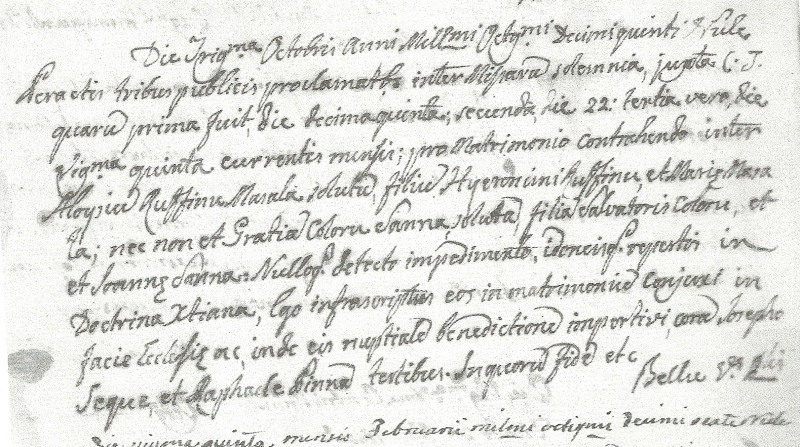 Die Trig.ma Octobris Anni Mill.mi Octg.mi Decimi quinti
Peractis tribus publicis proclamath.s inter Missarū solemnia, juxta C. T.
quarū prima fuit, die decima quinta, secunda die 22: tertia vero, die
Vig.ma quinta currentis mensis; pro Matrimonio contrahendo inter
Aloysiū Ruffinu Masala solutū, filiū Hyeronimi Ruffinu, et Marię Masa
la; nec non et Gratiā Coloru Sanna solutā, filiā Salvatoris Coloru, et
et Joannę Sanna. Nulloq. detecto impedimento, idoneisq. repertis in
Doctrina Xtiana, Ego infrascriptus eos in matrimoniū conjuxi in
facie Ecclesię ac, inde eis nuptialē benedictionē impertivi, corā Josepho
Seque, et Raphaele Pinna testibus. In quorū fidē etc
Bellu
Die quinta mensis Februarii milmi octigmi decimi sexti